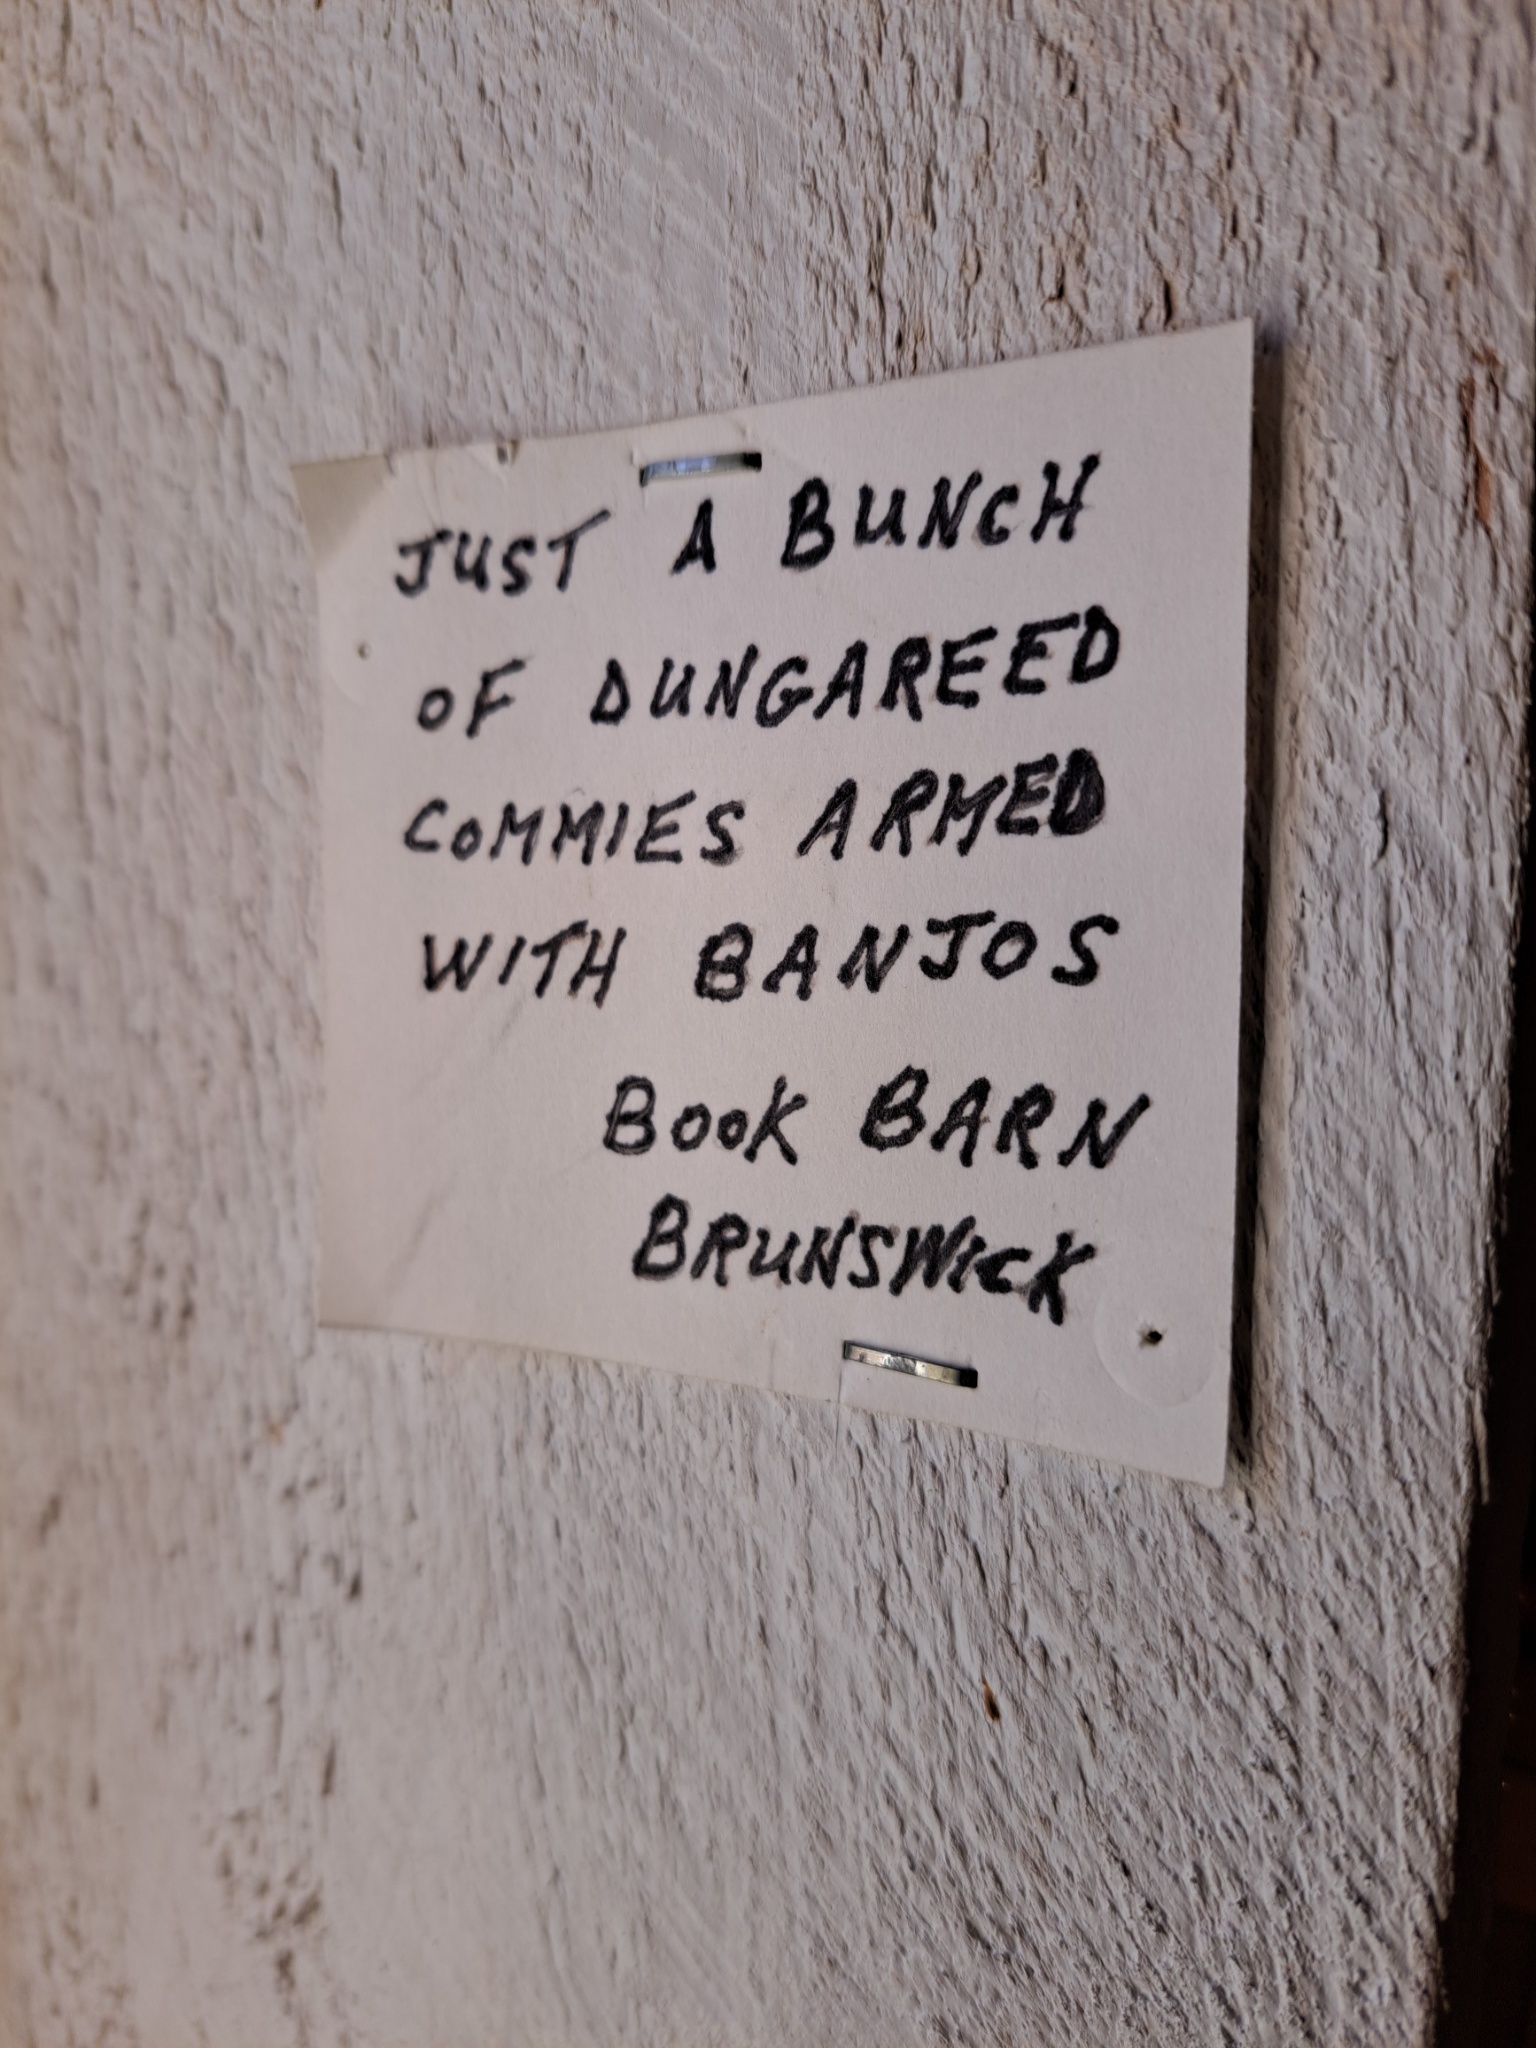 JUST A BUNCH
OF DUNGAREED
COMMIES ARMED
WITH BANJOS
BOOK BARN
BRUNSWICK